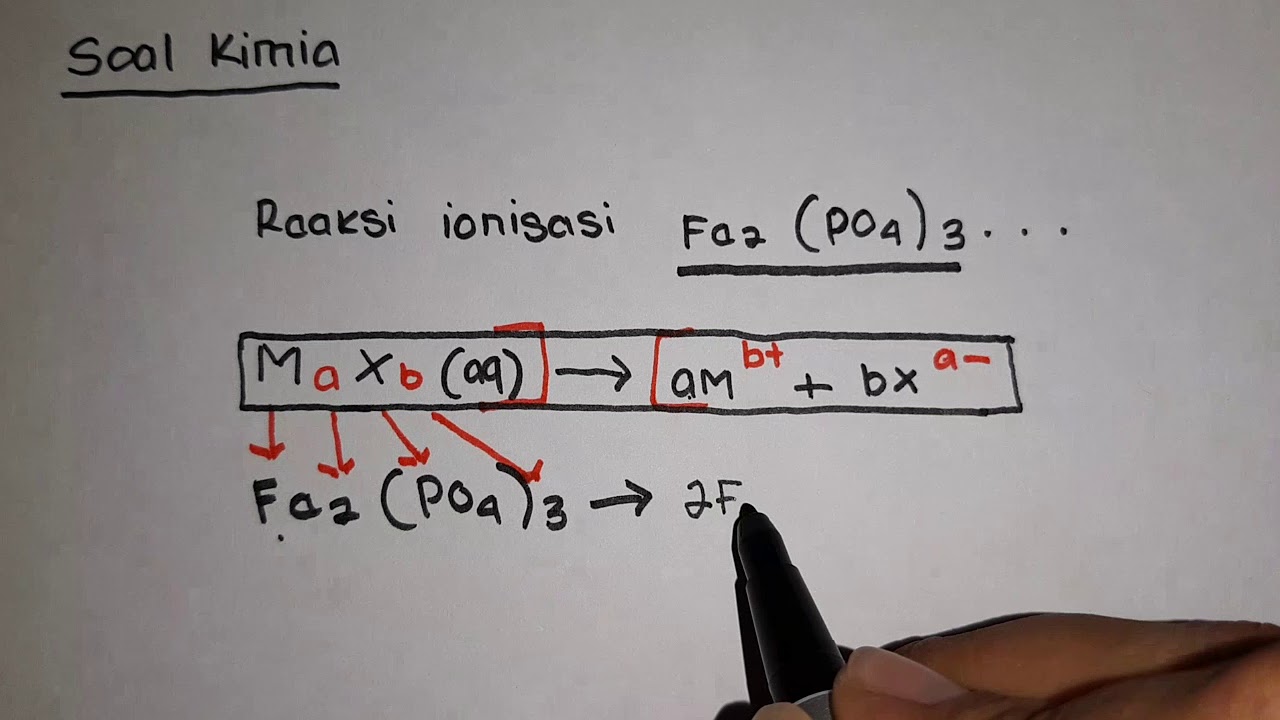 Soal Kimia
Reaksi ionisasi Fe₂ (PO₄)₃ . . .
MₐXb (aq) → aM^b+ + bX^a−
Fe₂ (PO₄)₃ → 2F